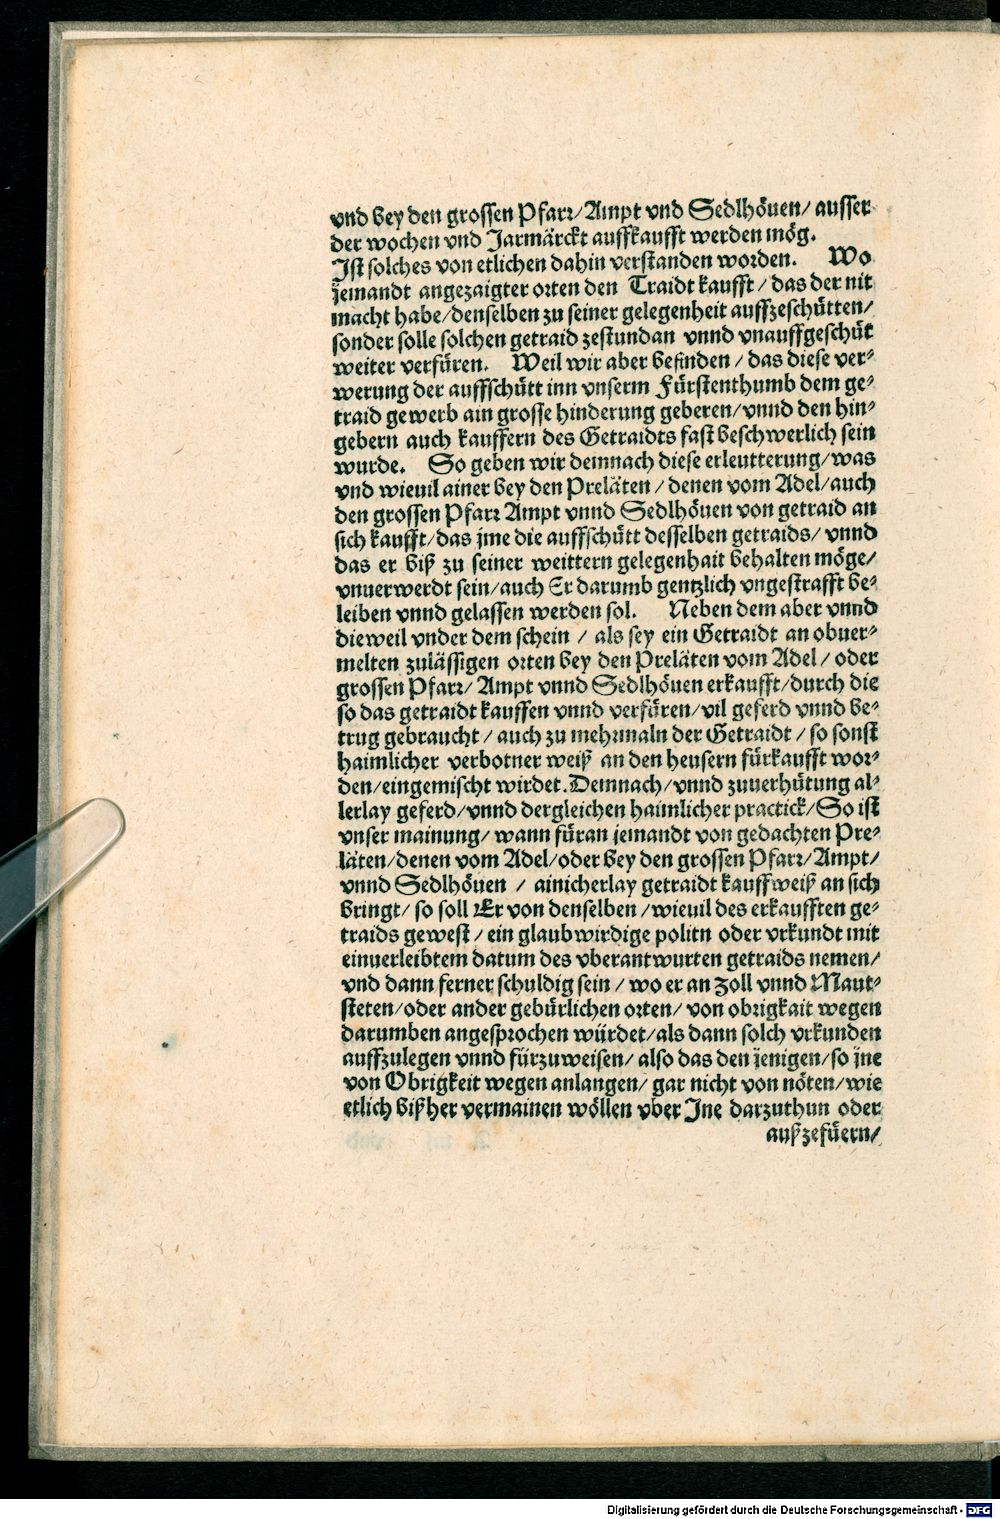 vnd bey den grossen Pfarr/Ampt vnd Sedlhöuen/ ausser
der wochen vnd Jarmärckt auffkaufft werden mög.
Ist solches von etlichen dahin verstanden worden. Wo
jemandt angezaigter orten den Traidt kaufft / das der nit
macht habe/denselben zu seiner gelegenheit auffzeschütten/
sonder solle solchen getraid zestundan vnnd vnauffgeschüt
weiter verfüren. Weil wir aber befinden / das diese ver⸗
werung der auffschütt inn vnserm Fürstenthumb dem ge⸗
traid gewerb ain grosse hinderung geberen/vnnd den hin⸗
gebern auch kauffern des Getraidts fast beschwerlich sein
wurde. So geben wir demnach diese erleutterung/was
vnd wieuil ainer bey den Preläten / denen vom Adel/auch
den grossen Pfarr Ampt vnnd Sedlhöuen von getraid an
sich kaufft/das jme die auffschütt desselben getraids/ vnnd
das er biß zu seiner weittern gelegenhait behalten möge/
vnuerwerdt sein/auch Er darumb gentzlich vngestrafft be⸗
leiben vnnd gelassen werden sol. Neben dem aber vnnd
dieweil vnder dem schein / als sey ein Getraidt an obuer⸗
melten zulässigen orten bey den Preläten vom Adel / oder
grossen Pfarr/ Ampt vnnd Sedlhöuen erkaufft/durch die
so das getraidt kauffen vnnd verfüren/vil geferd vnnd be⸗
trug gebraucht / auch zu mehrmaln der Getraidt / so sonst
haimlicher verbotner weiß an den heusern fürkaufft wor⸗
den/eingemischt wirdet. Demnach/vnnd zuuerhütung al⸗
lerlay geferd/vnnd dergleichen haimlicher practick/So ist
vnser mainung/ wann füran jemandt von gedachten Pre⸗
läten/denen vom Adel/oder bey den grossen Pfarr/Ampt/
vnnd Sedlhöuen / ainicherlay getraidt kauffweiß an sich
bringt/ so soll Er von denselben / wieuil des erkaufften ge⸗
traids gewest / ein glaubwirdige politn oder vrkundt mit
einuerleibtem datum des vberantwurten getraids nemen/
vnd dann ferner schuldig sein / wo er an Zoll vnnd Maut⸗
steten/oder ander gebürlichen orten/ von obrigkait wegen
darumben angesprochen würdet/als dann solch vrkunden
auffzulegen vnnd fürzuweisen/ also das den jenigen/so jne
von Obrigkeit wegen anlangen/ gar nicht von nöten/wie
etlich bißher vermainen wöllen vber Jne darzuthun oder
außzefüern/
Digitalisierung gefördert durch die Deutsche Forschungsgemeinschaft - DFG